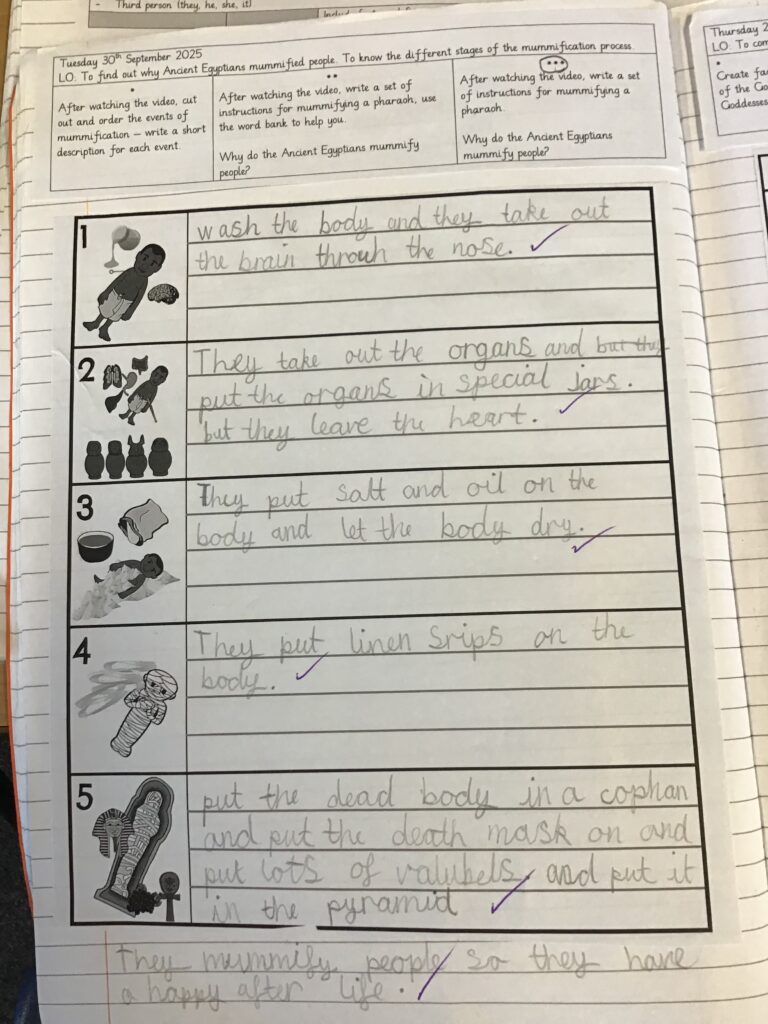 - Third person (they, he, she, it)
Tuesday 30th September 2025
LO. To find out why Ancient Egyptians mummified people. To know the different stages of the mummification process.
*
After watching the video, cut
out and order the events of
mummification – write a short
description for each event.
**
After watching the video, write a set of
instructions for mummifying a pharaoh, use
the word bank to help you.
Why do the Ancient Egyptians mummify
people?
***
After watching the video, write a set
of instructions for mummifying a
pharaoh.
Why do the Ancient Egyptians
mummify people?
Thursday 2
LO. To com
*
Create fa
of the Go
Goddesses
1
wash the body and they take out
the brain throuh the nose.
2
They take out the organs and but they
put the organs in special jars.
but they leave the heart.
3
They put salt and oil on the
body and let the body dry.
4
They put linen srips on the
body.
5
put the dead body in a cophan
and put the death mask on and
put lots of valybels, and put it
in the pyramid
They mummify people so they have
a happy after life.